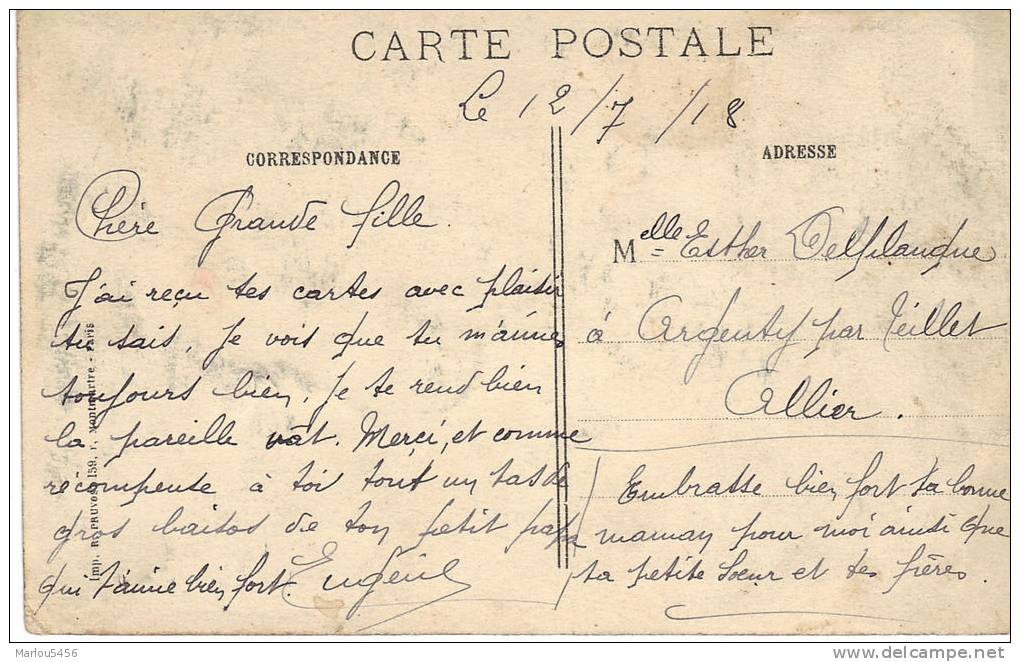 CARTE POSTALE
Le 12/7/18
CORRESPONDANCE
Chère Grande fille.
J'ai reçu tes cartes avec plaisir
tu sais, Je vois que tu m'aimes
toujours bien, Je te rend bien
la pareille vat. Merçi, et comme
récompense à toi tout un tas de
gros baisos de ton petit papa
qui t'aime bien fort. Eugène
ADRESSE
Melle Esther
à Argenty par Teillet
Allier.
Embrasse bien fort ta bonne
maman pour moi ainsi que
ta petite soeur et tes frères.
Imp. 159, r. Montmartre - Paris
Marlou5456
delcampe.net